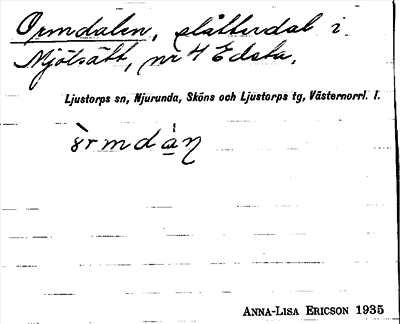 Ormdalen, slåtterdal i
Mjölsätt, nr 4 Edsta.
Ljustorps sn, Njurunda, Sköns och Ljustorps tg, Västernorrl. l.
ANNA-LISA ERICSON 1935